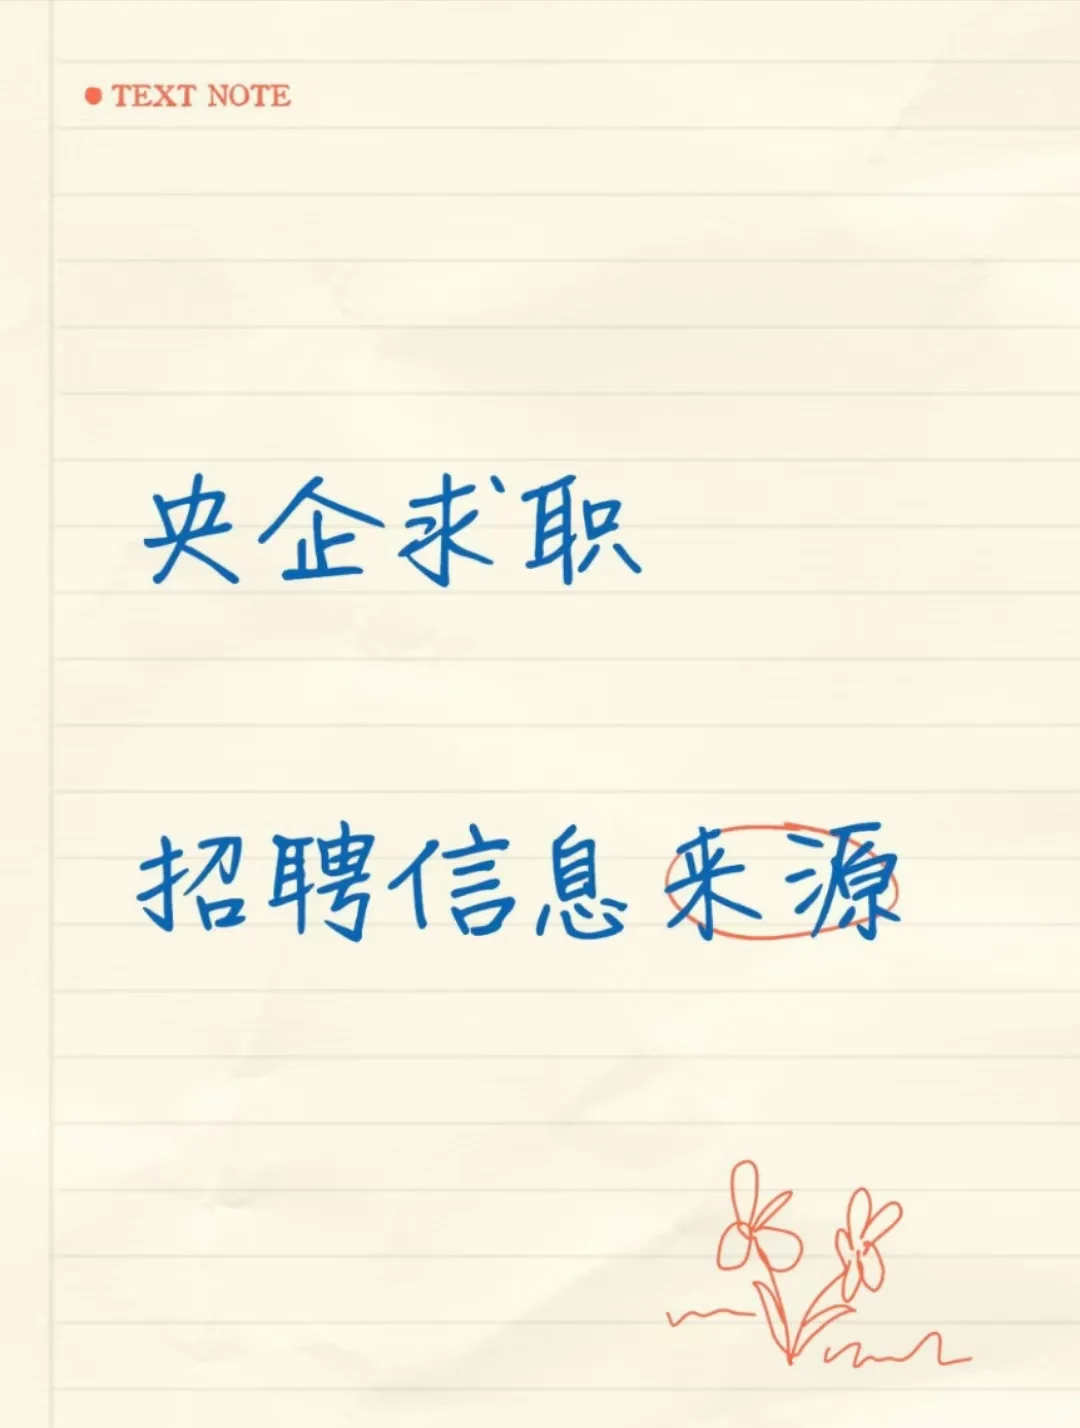 TEXT NOTE
央企求职
招聘信息来源